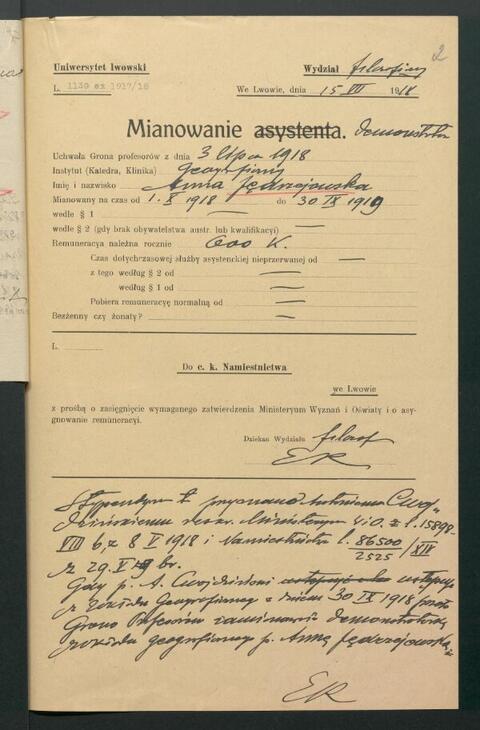 2
Uniwersytet lwowski
Wydział filozoficzny
L. 1139 ex 1917/18
We Lwowie, dnia 15 VII 1918
Mianowanie asystenta. demonstratora
Uchwała Grona profesorów z dnia 3 lipca 1918
Instytut (Katedra, Klinika) Geograficzny
Imię i nazwisko Anna Jędrzejowska
Mianowany na czas od 1. X 1918 do 30 IX 1919
wedle § 1 —
wedle § 2 (gdy brak obywatelstwa austr. lub kwalifikacyi) —
Remuneracya należna rocznie 600 K.
Czas dotychczasowej służby asystenckiej nieprzerwanej od —
z tego według § 2 od —
według § 1 od —
Pobiera remuneracyę normalną od —
Bezżenny czy żonaty? —
L.
Do c. k. Namiestnictwa
we Lwowie
z prośbą o zasięgnięcie wymaganego zatwierdzenia Ministeryum Wyznań i Oświaty i o asy-
gnowanie remuneracyi.
Dziekan Wydziału filozof
ER
Stypendyum to przyznano Antoniemu Cwoj-
dzińskiemu Ministeryum W i O. z l. 15898
VII 6, z 8 V 1918 i Namiestnictwa l. 86500/2525 XIX
z 29. V br.
Gdy p. A. Cwojdziński ustępuje
z Zakładu Geograficznego z dniem 30 IX 1918
Grono Profesorów zamianowało demonstratorką
zakładu geograficznego p. Annę Jędrzejowską.
ER